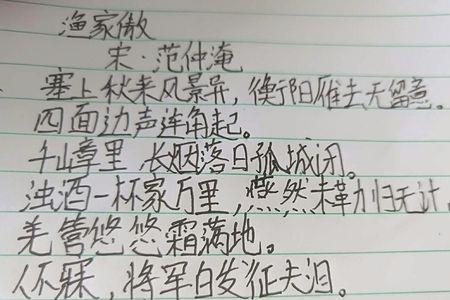 渔家傲
宋·范仲淹
塞上秋来风景异,衡阳雁去无留意。
四面边声连角起。
千嶂里 长烟落日孤城闭。
浊酒一杯家万里,燕然未勒归无计,
羌管悠悠霜满地。
人不寐,将军白发征夫泪。